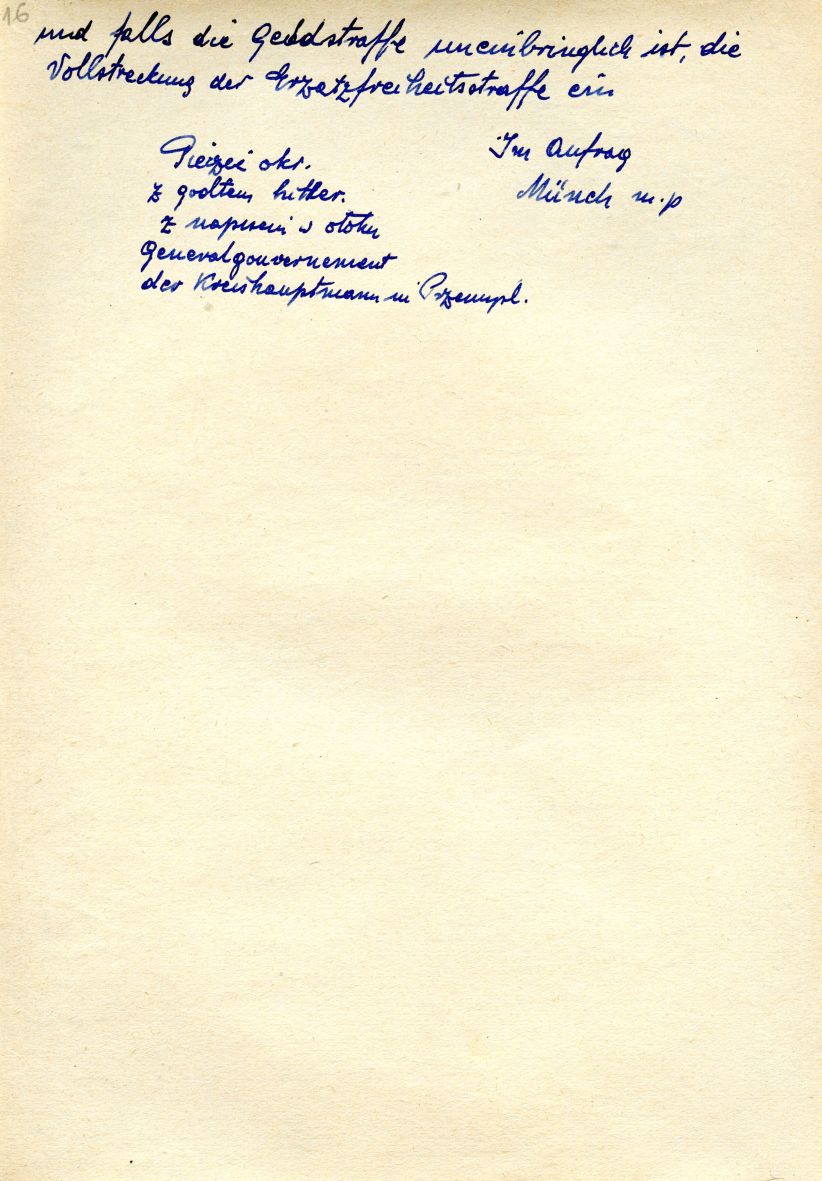 16
und falls die Geldstraffe uneinbringlich ist, die
Vollstreckung der Erzatzfreiheitsstraffe ein
Im Aufrag
Münch m.p
Pieizęć okr.
z godłem hitler.
z napisem w otoku
Generalgouvernement
der Kreishauptmann in Przemysl.